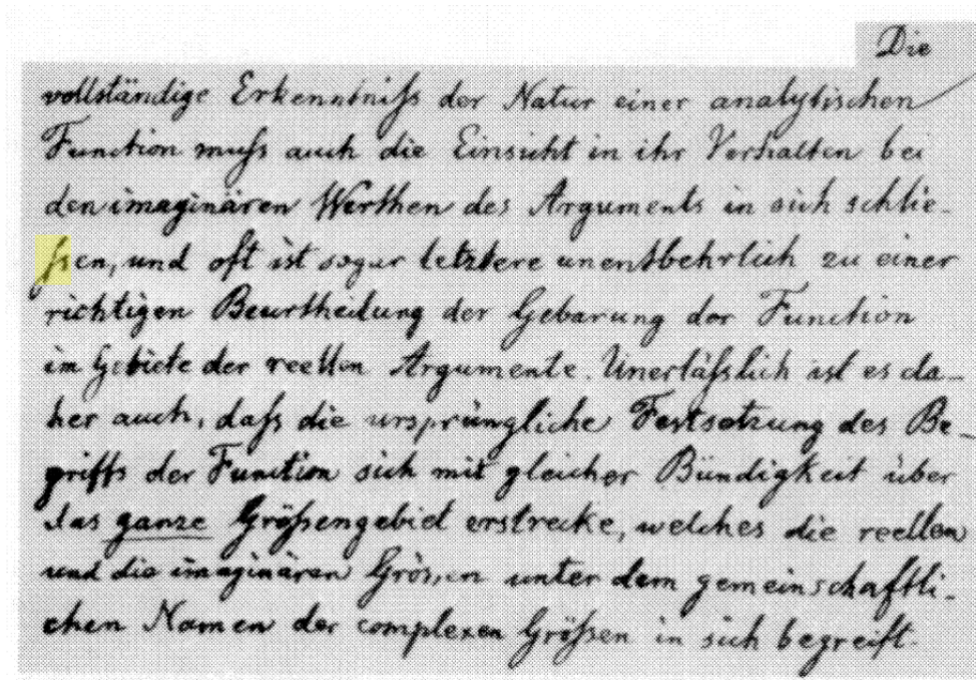 Die
vollständige Erkenntniſs der Natur einer analytischen
Function muſs auch die Einsicht in ihr Verhalten bei
den imaginären Werthen des Arguments in sich schlie-
ſsen, und oft ist sogar letztere unentbehrlich zu einer
richtigen Beurtheilung der Gebarung der Function
im Gebiete der reellen Argumente. Unerläſslich ist es da-
her auch, daſs die ursprüngliche Festsetzung des Be-
griffs der Function sich mit gleicher Bündigkeit über
das ganze Gröſsengebiet erstrecke, welches die reellen
und die imaginären Gröſsen unter dem gemeinschaftli-
chen Namen der complexen Gröſsen in sich begreift.